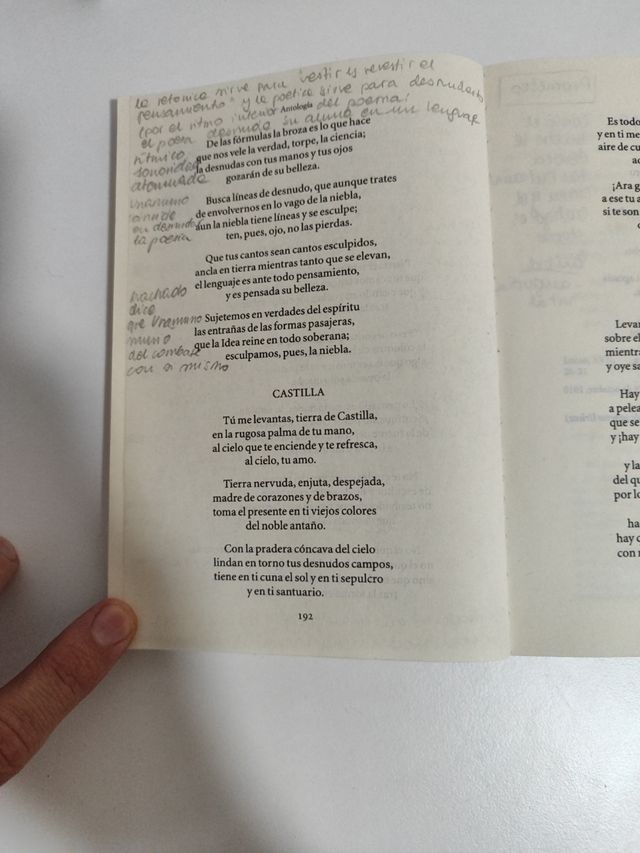 la retorica sirve para "vestir y revestir el
pensamiento" y la poetica sirve para desnudarlo
(por el ritmo interior del poema,
Antología
el poeta desnuda su alma en un lenguaje
rítmico
sonoridad
De las fórmulas la broza es lo que hace
que nos vele la verdad, torpe, la ciencia;
la desnudas con tus manos y tus ojos
gozarán de su belleza.
Unamuno
en desnudo
la poesía
Busca líneas de desnudo, que aunque trates
de envolvernos en lo vago de la niebla,
aun la niebla tiene líneas y se esculpe;
ten, pues, ojo, no las pierdas.
Que tus cantos sean cantos esculpidos,
ancla en tierra mientras tanto que se elevan,
el lenguaje es ante todo pensamiento,
y es pensada su belleza.
Machado
dice
que Unamuno
del combate
con a mismo
Sujetemos en verdades del espíritu
las entrañas de las formas pasajeras,
que la Idea reine en todo soberana;
esculpamos, pues, la niebla.
CASTILLA
Tú me levantas, tierra de Castilla,
en la rugosa palma de tu mano,
al cielo que te enciende y te refresca,
al cielo, tu amo.
Tierra nervuda, enjuta, despejada,
madre de corazones y de brazos,
toma el presente en ti viejos colores
del noble antaño.
Con la pradera cóncava del cielo
lindan en torno tus desnudos campos,
tiene en ti cuna el sol y en ti sepulcro
y en ti santuario.
192
Es todo
y en ti me
aire de cu
¡Ara g
a ese tu a
si te son
Levan
sobre el
mientra
y oye sa
Hay
a pelea
que se
y ¡hay
y la
del qu
por lo
ha
hay c
con